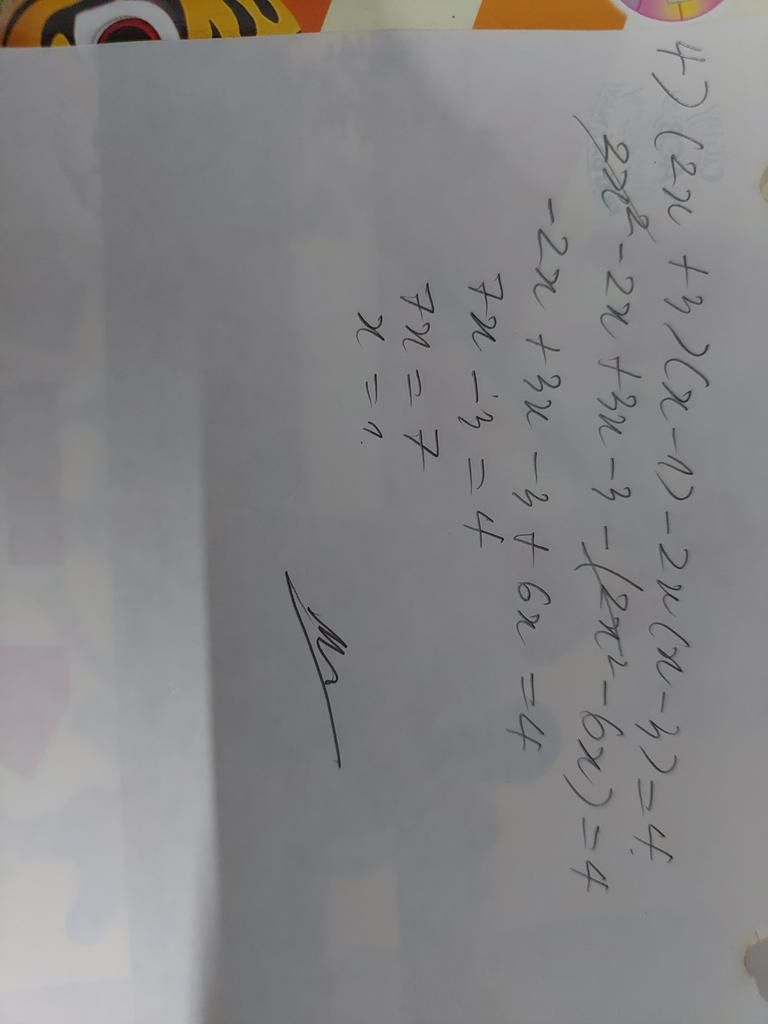 4) (2x + 3)(x - 1) - 2x(x - 3) = 4.
2x² - 2x + 3x - 3 - (2x² - 6x) = 4
-2x + 3x - 3 + 6x = 4
7x - 3 = 4
7x = 7
x = 1.